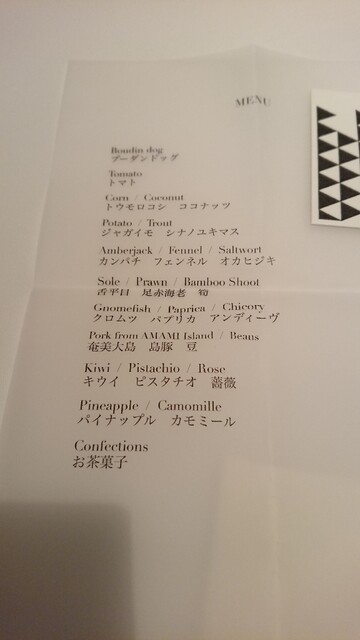 MENU
Boudin dog
ブーダンドッグ
Tomato
トマト
Corn / Coconut
トウモロコシ ココナッツ
Potato / Trout
ジャガイモ シナノユキマス
Amberjack / Fennel / Saltwort
カンパチ フェンネル オカヒジキ
Sole / Prawn / Bamboo Shoot
舌平目 足赤海老 筍
Gnomefish / Paprica / Chicory
クロムツ パプリカ アンディーヴ
Pork from AMAMI Island / Beans
奄美大島 島豚 豆
Kiwi / Pistachio / Rose
キウイ ピスタチオ 薔薇
Pineapple / Camomille
パイナップル カモミール
Confections
お茶菓子